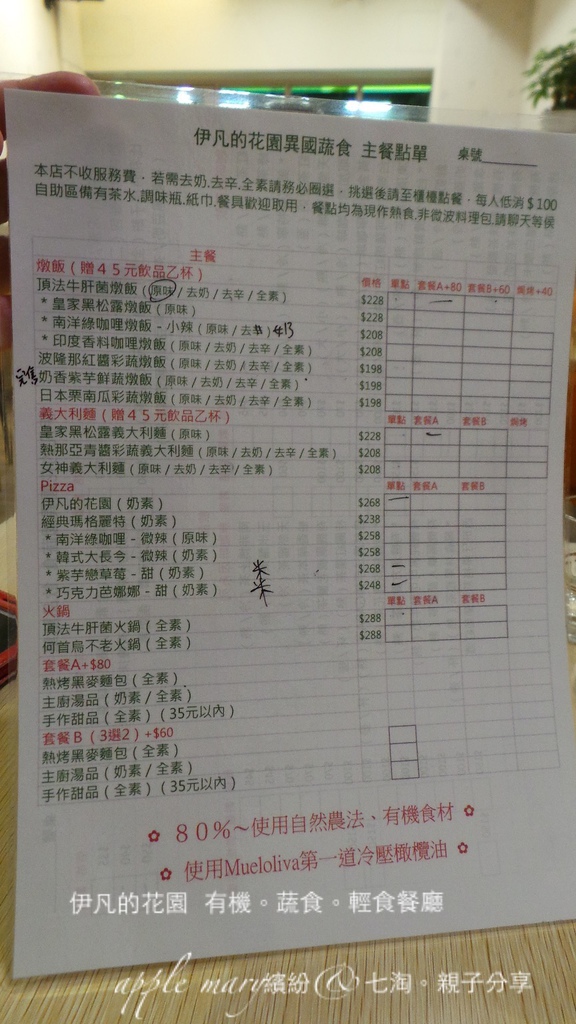 伊凡的花園異國蔬食 主餐點單 桌號
本店不收服務費，若需去奶,去辛,全素請務必圈選，挑選後請至櫃檯點餐，每人低消＄100
自助區備有茶水,調味瓶,紙巾,餐具歡迎取用，餐點均為現作熱食,非微波料理包,請聊天等侯
主餐
燉飯（贈４５元飲品乙杯） 價格 單點 套餐A+80 套餐B+60 焗烤+40
頂法牛肝菌燉飯（原味/去奶/去辛/全素） $228
＊皇家黑松露燉飯（原味） $228
＊南洋綠咖哩燉飯－小辣（原味/去 $208
＊印度香料咖哩燉飯（原味/去奶/去辛/全素） $208
波隆那紅醬彩蔬燉飯（原味/去奶/去辛/全素） $198
完售 奶香紫芋鮮蔬燉飯（原味/去奶/去辛/全素） $198
日本栗南瓜彩蔬燉飯（原味/去奶/去辛/全素） $198
義大利麵（贈４５元飲品乙杯） 單點 套餐A 套餐B 焗烤
皇家黑松露義大利麵（原味） $228
熱那亞青醬彩蔬義大利麵（原味/去奶/去辛/全素） $208
女神義大利麵（原味/去奶/去辛/全素） $208
Pizza 單點 套餐A 套餐B
伊凡的花園（奶素） $268
經典瑪格麗特（奶素） $238
＊南洋綠咖哩－微辣（原味） $258
＊韓式大長今－微辣（奶素） $258
＊紫芋戀草莓－甜（奶素） $268
＊巧克力芭娜娜－甜（奶素） $248
火鍋 單點 套餐A 套餐B
頂法牛肝菌火鍋（全素） $288
何首烏不老火鍋（全素） $288
套餐A+$80
熱烤黑麥麵包（全素）
主廚湯品（奶素/全素）
手作甜品（全素）（35元以內）
套餐Ｂ（3選2）+$60
熱烤黑麥麵包（全素）
主廚湯品（奶素/全素）
手作甜品（全素）（35元以內）
✿ ８０％~使用自然農法、有機食材 ✿
✿ 使用Mueloliva第一道冷壓橄欖油 ✿
伊凡的花園 有機。蔬食。輕食餐廳
apple mary繽紛@七淘。親子分享